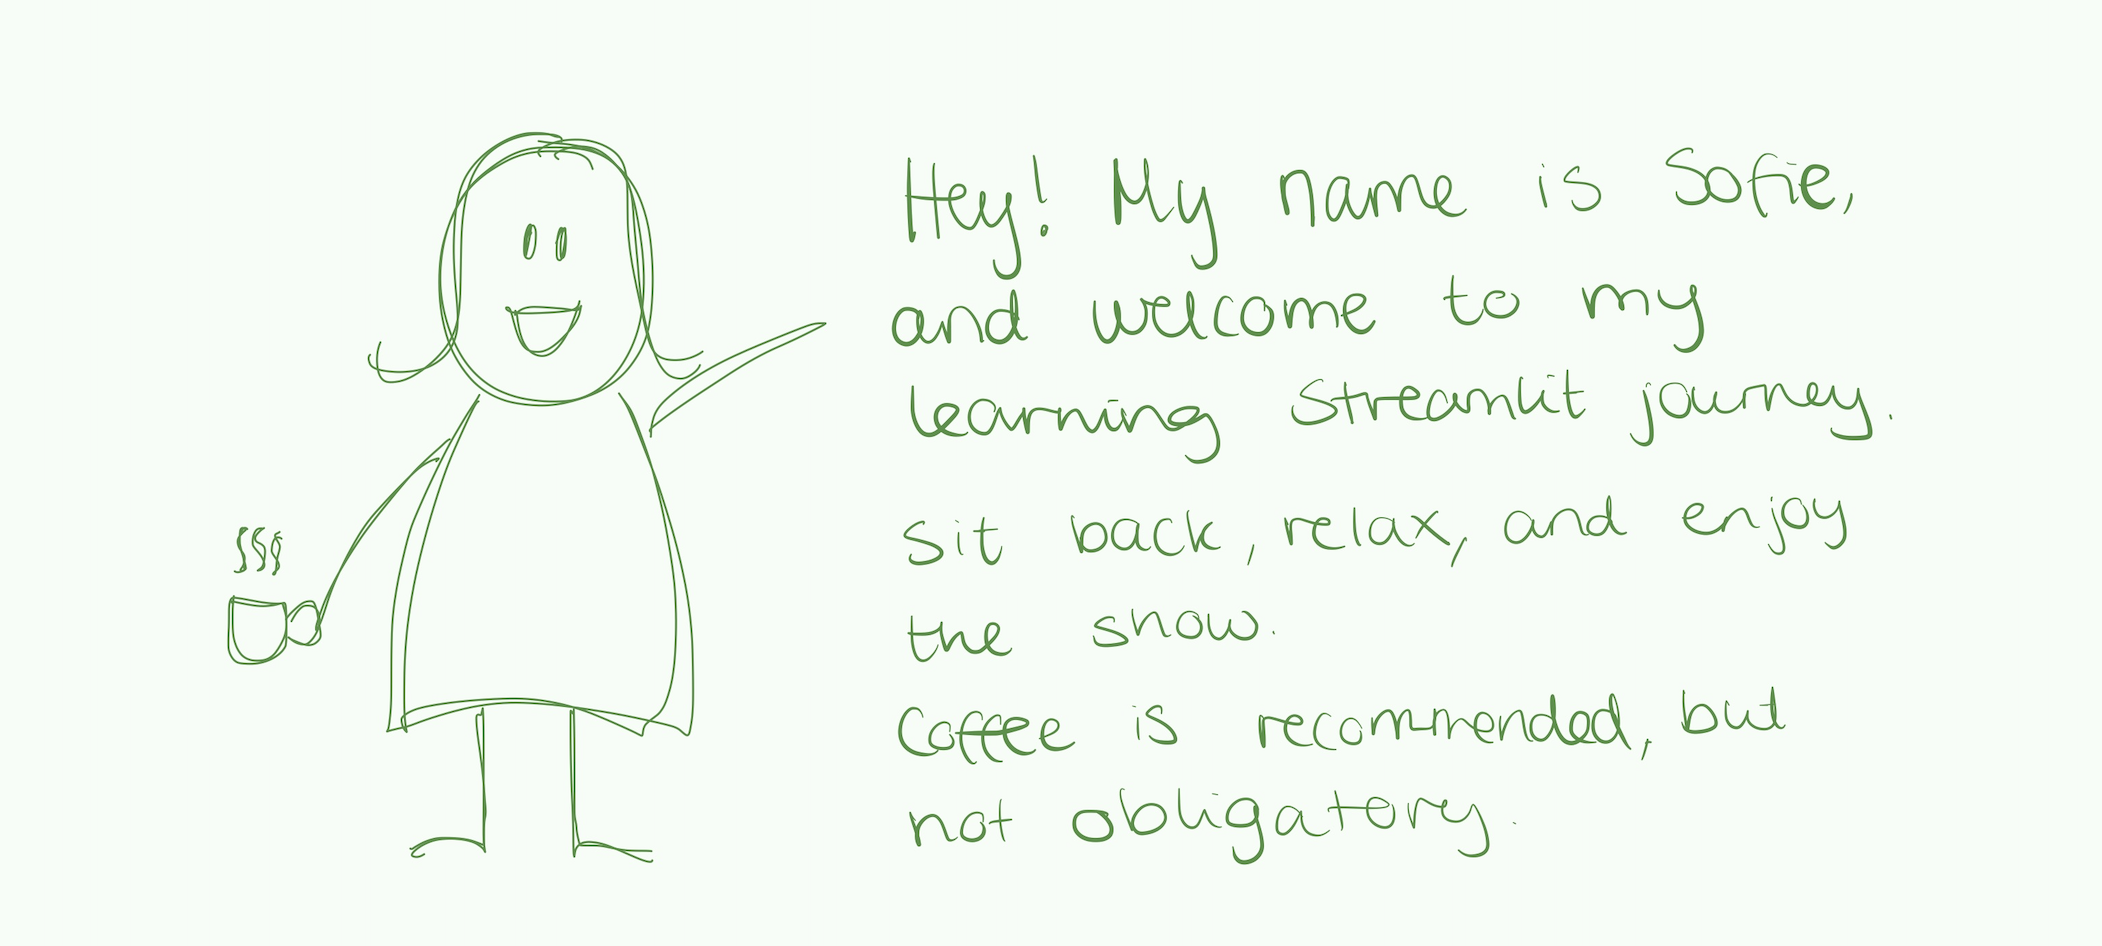 Hey! My name is Sofie,
and welcome to my
learning Streamlit journey.
Sit back, relax, and enjoy
the show.
Coffee is recommended, but
not obligatory.